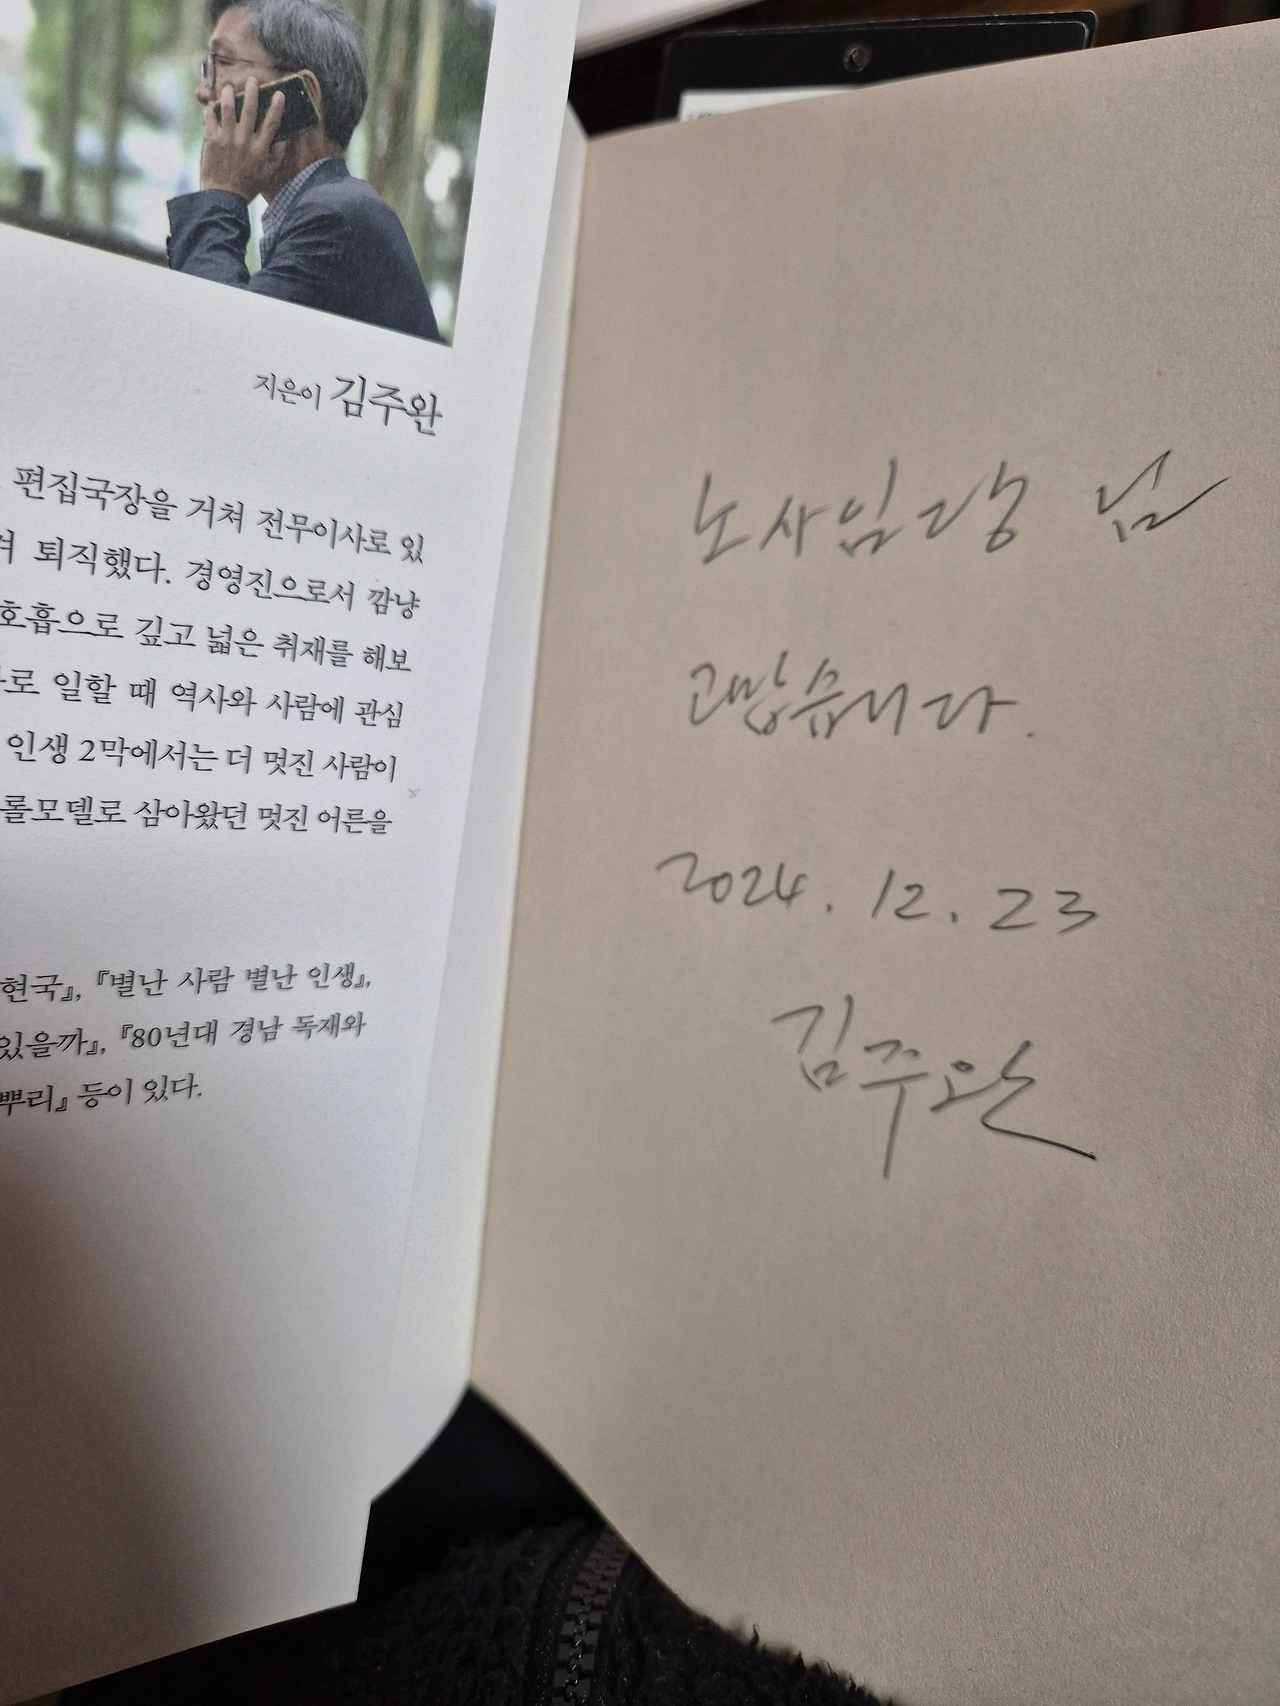 지은이 김주완
편집국장을 거쳐 전무이사로 있
퇴직했다. 경영진으로서 깜냥
호흡으로 깊고 넓은 취재를 해보
로 일할 때 역사와 사람에 관심
인생 2막에서는 더 멋진 사람이
롤모델로 삼아왔던 멋진 어른을
현국』, 『별난 사람 별난 인생』,
있을까』, 『80년대 경남 독재와
뿌리』 등이 있다.
노사임당 님
고맙습니다.
2024. 12. 23
김주완